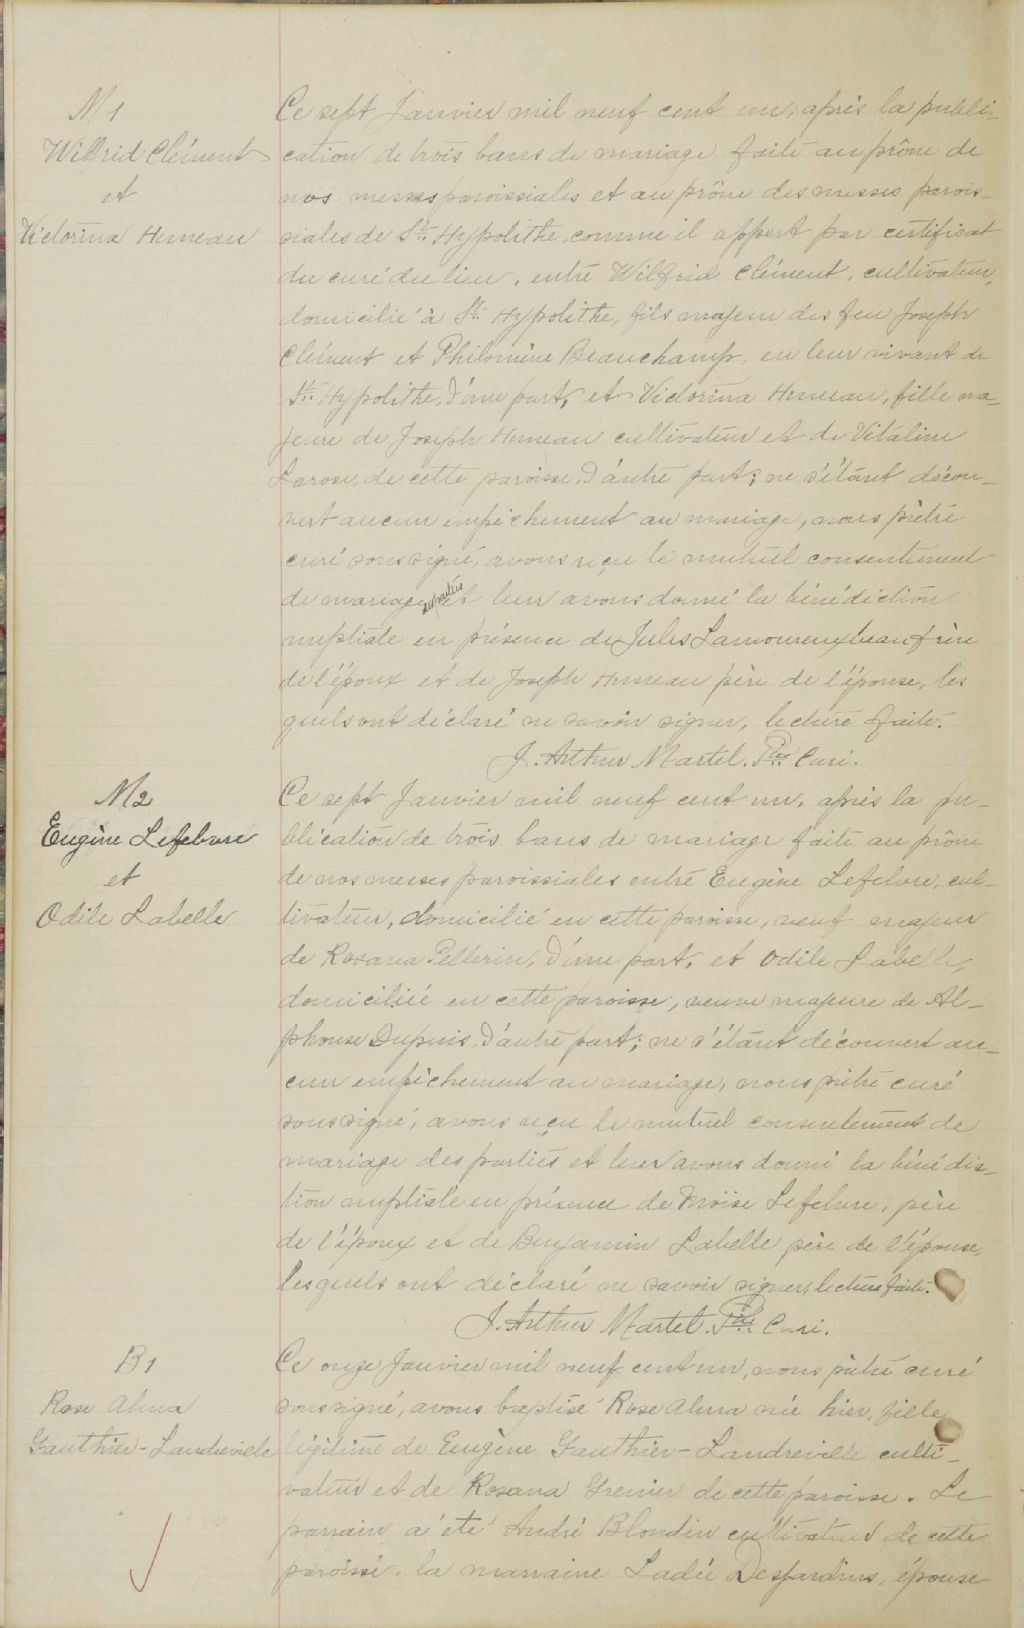 M 1
Wilfrid Clément
et
Victorina Huneau
Ce sept Janvier mil neuf cent un, après la publi-
cation de trois bans de mariage faite au prône de
nos messes paroissiales et au prône des messes parois-
siales de St. Hypolithe, comme il appert par certificat
du curé du lieu, entre Wilfrid Clément, cultivateur,
domicilié à St. Hypolithe, fils majeur des feu Joseph
Clément et Philomène Beauchamp, en leur vivant de
St. Hypolithe, d'une part, et Victorina Huneau, fille ma-
jeure de Joseph Huneau cultivateur et de Vitaline
Larose, de cette paroisse, d'autre part; ne s'étant décou-
vert aucun empêchement au mariage, nous prêtre
curé soussigné, avons reçu le mutuel consentement
de mariage des parties et leur avons donné la bénédiction
nuptiale en présence de Jules Lamoureux beau frère
de l'époux et de Joseph Huneau père de l'épouse, les
quels ont déclaré ne savoir signer, lecture faite.
J. Arthur Martel. Ptre Curé.
M2
Eugène Lefebvre
et
Odile Labelle
Ce sept Janvier mil neuf cent un, après la pu-
blication de trois bans de mariage faite au prône
de nos messes paroissiales entre Eugène Lefebvre, cul-
tivateur, domicilié en cette paroisse, veuf majeur
de Rosana Pellerin, d'une part, et Odile Labelle,
domiciliée en cette paroisse, veuve majeure de Al-
phonse Dupuis, d'autre part; ne s'étant découvert au-
cun empêchement au mariage, nous prêtre curé
soussigné, avons reçu le mutuel consentement de
mariage des parties et leur avons donné la bénédic-
tion nuptiale en présence de Moïse Lefebvre, père
de l'époux et de Benjamin Labelle père de l'épouse,
lesquels ont déclaré ne savoir signer, lecture faite.
J. Arthur Martel. Ptre Curé.
B1
Rose Alma
Gauthier-Landreville
Ce onze Janvier mil neuf cent un, nous prêtre curé
soussigné, avons baptisé Rose Alma née hier, fille
légitime de Eugène Gauthier-Landreville culti-
vateur et de Rosana Grenier de cette paroisse. Le
parrain a été André Blondin cultivateur de cette
paroisse, la marraine Ladée Desjardins, épouse